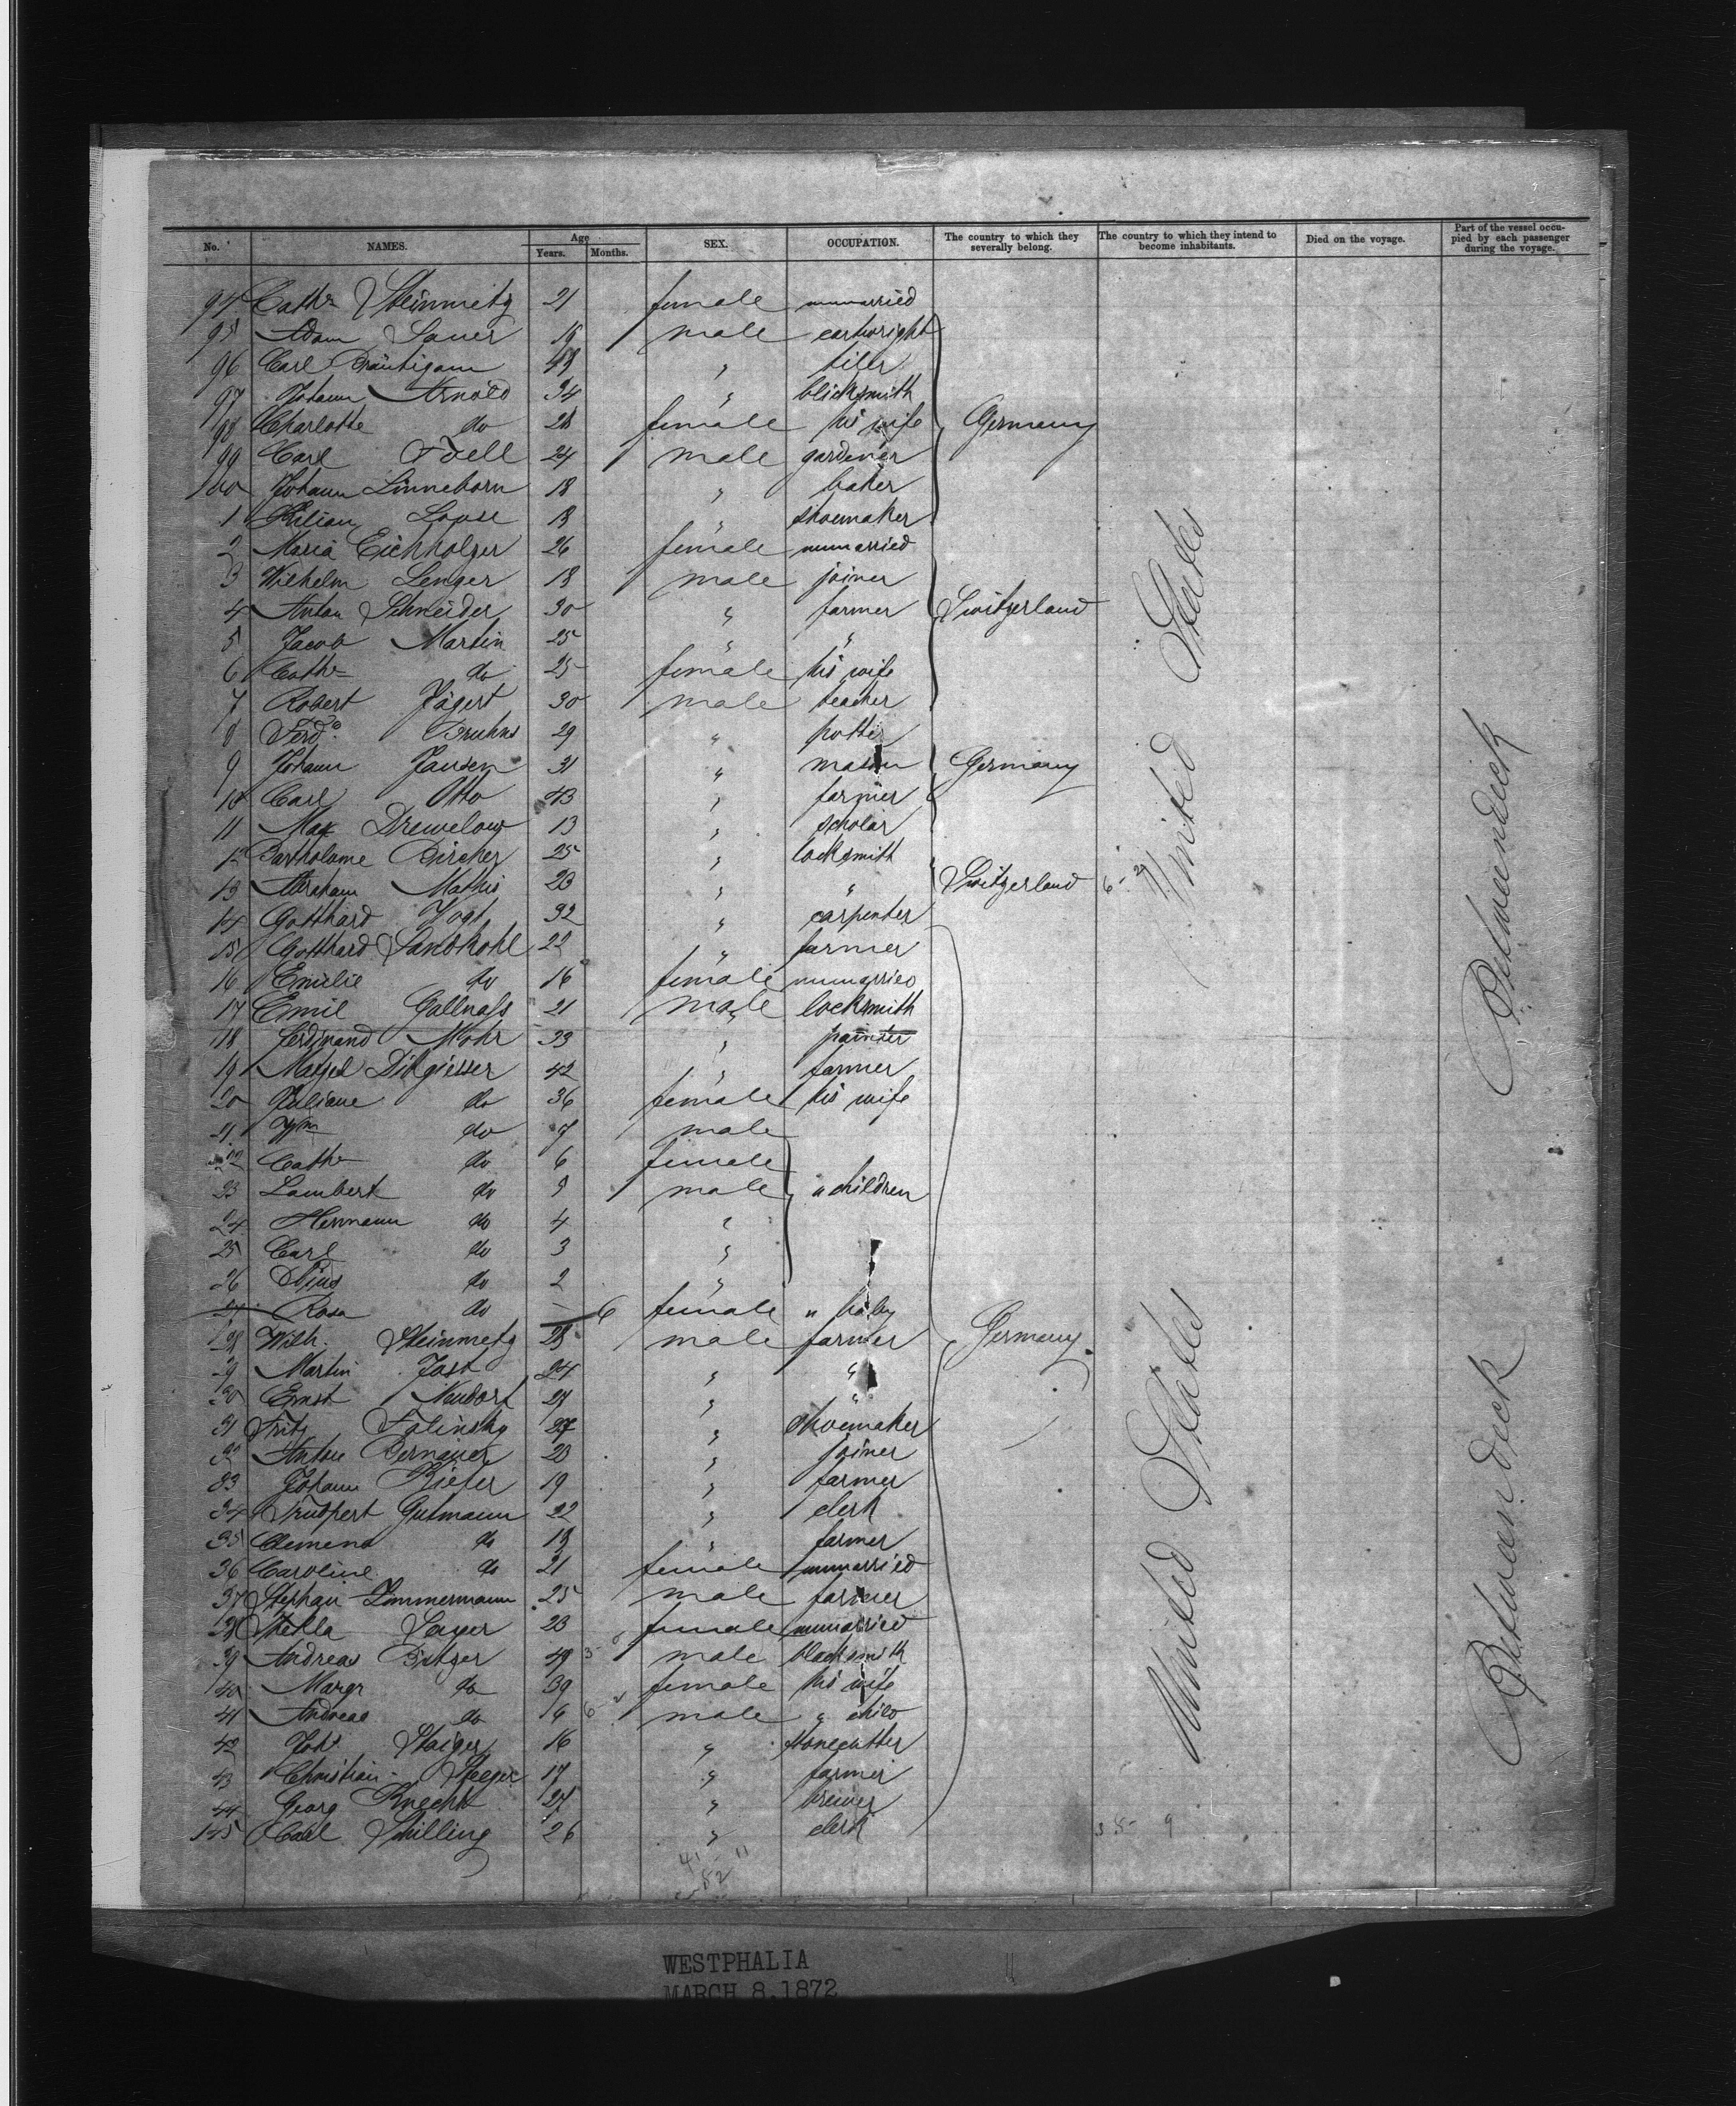 No. NAMES. Age Years. Months. SEX. OCCUPATION. The country to which they severally belong. The country to which they intend to become inhabitants. Died on the voyage. Part of the vessel occupied by each passenger during the voyage.
94 Cathe Steinmetz 21 female unmarried
95 Adam Sauer 19 male cartwright
96 Carl Bräutigam " tiler
97 Johann Arnold 34 " blicksmith
98 Charlotte do 28 female his wife Germany
99 Carl Foell 24 male gardener
100 Johann Linneborn 18 " baker
1 Kilian Lopse 18 " shoemaker
2 Maria Eichholzer 26 female unmarried
3 Wilhelm Lenger 18 male joiner
4 Anton Schneider 30 " farmer Switzerland
5 Jacob Martin 25 " "
6 Cathe do 25 female his wife
7 Robert Jägert 30 male teacher
8 Ferd. Bruhns 29 " potter
9 Johann Jansen 31 " mason Germany
10 Carl Otto 43 " farmer
11 Max Drewelow 13 " scholar
12 Bartholome Bircher 25 " locksmith
13 Abraham Mathis 23 " " Switzerland
14 Gotthard Vogt 32 " carpenter
15 Gotthard Sandkohl 22 " farmer
16 Emilie do 16 female unmarried
17 Emil Gallnass 21 male locksmith
18 Ferdinand Mohr 33 " painter
19 Diegisser 42 " farmer
20 Juliane do 36 female his wife
21 Wm do 7 male
22 Cathe do 6 female
23 Lambert do 5 male " children
24 Hermann do 4 "
25 Carl do 3 "
26 do 2 "
27 Rosa do - 6 female " baby
128 Wilh. Steinmetz 28 male farmer Germany
29 Martin Jost 24 " "
30 Ernst Neudorf 27 " "
31 Fritz Falinsky 27 " shoemaker
32 Anton Bernauer 20 " joiner
33 Johann Kiefer 19 " farmer
34 Trudpert Gutmann 22 " clerk
35 Clemens do 18 " farmer
36 Caroline do 21 female unmarried
37 Stephan Zimmermann 25 male farmer
38 Thekla 23 female unmarried
39 Andreas Bitzer 49 male blacksmith
40 Margr do 39 female his wife
41 Andreas do male " child
42 Johs. Staiger 16 " stonecutter
43 Christian Steeger 17 " farmer
44 Georg Knecht 27 " brewer
145 Carl Schilling 26 " clerk
United States
United States
Betweendeck
Betweendeck
41 11
52
35 9
WESTPHALIA
MARCH 8, 1872
11